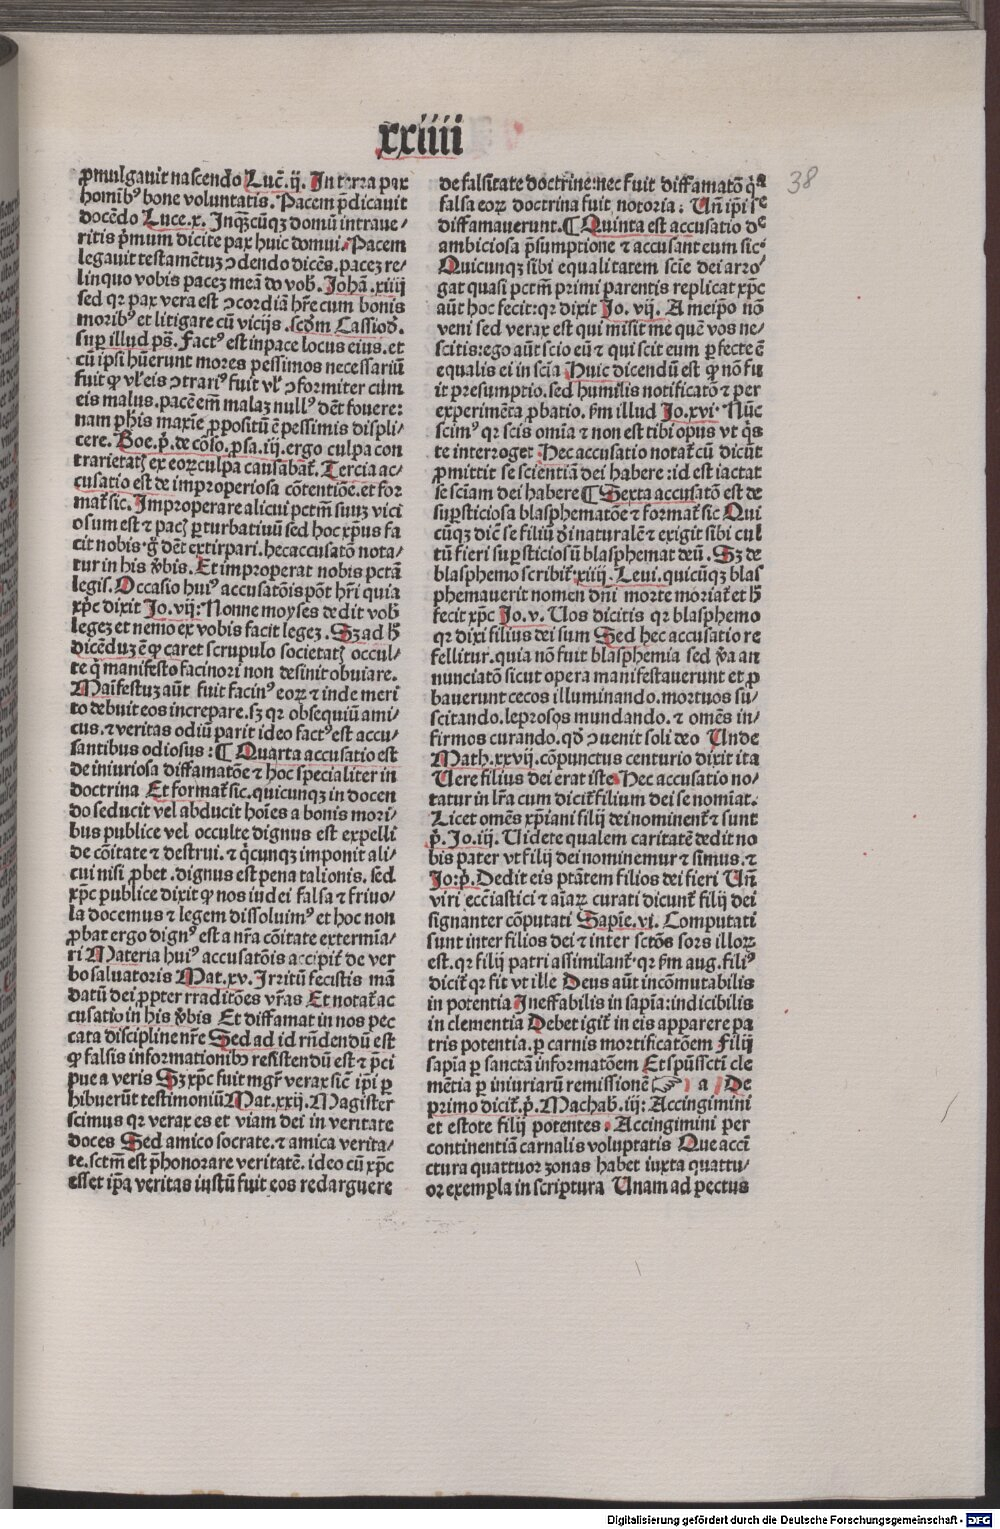 xxiiii
38
ꝓmulgauit nascendo Luc̄.ij. In terra pax
homibꝰ bone voluntatis. Pacem p̄dicauit
docēdo Luce.x. Inqꝫcūqꝫ domū intraue/
ritis p̄mum dicite pax huic domui. Pacem
legauit testamētuꝫ ꝯdendo dicēs. paceꝫ re/
linquo vobis paceꝫ meā do vob̄. Johā.xiiij
sed qꝛ pax vera est ꝯcordiā hr̄e cum bonis
moribꝰ et litigare cū vicijs. scd̄m Cassiod̄.
suꝑ illud ps̄. Factꝰ est in pace locus eius. et
cū ipsi hūerunt mores pessimos necessariū
fuit ꝙ vl̓ eis ꝯtrariꝰ fuit vl̓ ꝯformiter cum
eis malus. pacē em̄ malaꝫ nullꝰ dēt fouere:
nam ꝑ his maxīe ꝓpositū ē pessimis displi/
cere. Boe.p̄.de cōso. ꝓsa.iij. ergo culpa con
trarietatꝭ ex eoꝝ culpa causabat̄. Tercia ac/
cusatio est de improperiosa cōtentiōe. et for
mat̄ sic. Improperare alicui pctm̄ suuꝫ vici
osum est ⁊ pacꝭ ꝑturbatiuū sed hoc xp̄us fa
cit nobis. g̊ dēt extirpari. hec accusatō nota/
tur in his v̄bis. Et improperat nobis pctā
legis. Occasio huiꝰ accusatōis pōt hr̄i quia
xp̄c dixit Jo.vij: Nonne moyses dedit vob̄
legeꝫ et nemo ex vobis facit legeꝫ. Sꝫ ad h̄
dicēduꝫ ē ꝙ caret scrupulo societatꝭ occul/
te q̄ manifesto facinori non desinit obuiare.
Maīfestuꝫ aūt fuit facinꝰ eoꝝ ⁊ inde meri
to debuit eos increpare. sꝫ qꝛ obsequiū ami/
cus. ⁊ veritas odiū parit ideo factꝰ est accu/
santibus odiosus: ¶ Quarta accusatio est
de iniuriosa diffamatōe ⁊ hoc specialiter in
doctrina Et format̄ sic. quicunqꝫ in docen
do seducit vel abducit hoīes a bonis mori/
bus publice vel occulte dignus est expelli
de cōitate ⁊ destrui. ⁊ q̄cunqꝫ imponit ali/
cui nisi ꝓbet. dignus est pena talionis. sed
xp̄c publice dixit ꝙ nos iudei falsa ⁊ friuo/
la docemus ⁊ legem dissoluimꝰ et hoc non
ꝓbat ergo dignꝰ est a nr̄a cōitate extermīa/
ri Materia huiꝰ accusatōis accipit̄ de ver
bo saluatoris Mat.xv. Irritū fecistis mā
datū dei ꝓpter traditōes vr̄as Et notat̄ ac
cusatio in his v̄bis Et diffamat in nos pec
cata discipline nr̄e Sed ad id rn̄dendū est
ꝙ falsis informationibꝫ resistendū est ⁊ p̄ci
pue a veris Sꝫ xp̄c fuit mgr̄ verax sic̄ ip̄i ꝑ
hibuerūt testimoniū Mat.xxij. Magister
scimus qꝛ verax es et viam dei in veritate
doces Sed amico socrate. ⁊ amica verita/
te. sctm̄ est p̄honorare veritatē. ideo cū xp̄c
esset ip̄a veritas iustū fuit eos redarguere
de falsitate doctrine: nec fuit diffamatō q̄a
falsa eoꝝ doctrina fuit notoria: Un̄ ip̄i se
diffamauerunt. ¶ Quinta est accusatio de
ambiciosa p̄sumptione ⁊ accusant eum sic:
Quicunqꝫ sibi equalitatem scīe dei arro/
gat quasi pctm̄ primi parentis replicat xp̄c
aūt hoc fecit: qꝛ dixit Jo.vij. A meip̄o nō
veni sed verax est qui misit me quē vos ne/
scitis: ego aūt scio eū ⁊ qui scit eum ꝑfecte ē
equalis ei in scīa Huic dicendū est ꝙ nō fu
it presumptio. sed humilis notificatō ⁊ per
experimēta ꝓbatio. ẜm illud Jo.xvi. Nūc
scimꝰ qꝛ scis omīa ⁊ non est tibi opus vt q̄s
te interroget Hec accusatio notat̄ cū dicūt
ꝓmittit se scientiā dei habere: id est iactat
se sciam dei habere ¶ Sexta accusatō est de
suꝑsticiosa blasphematōe ⁊ format̄ sic Qui
cūqꝫ dic̄ se filiū d̄i naturalē ⁊ exigit sibi cul
tū fieri suꝑsticiosū blasphemat deū. Sꝫ de
blasphemo scribit̄. xiiij. Leui. quicūqꝫ blas
phemauerit nomen dn̄i morte moriat̄ et h̄
fecit xp̄c Jo.v. Uos dicitis qꝛ blasphemo
qꝛ dixi filius dei sum Sed hec accusatio re
fellitur. quia nō fuit blasphemia sed v̄a an
nunciatō sicut opera manifestauerunt et ꝓ
bauerunt cecos illuminando. mortuos su/
scitando. leprosos mundando. ⁊ omēs in/
firmos curando. qd̄ ꝯuenit soli deo Unde
Math.xxvij. cōpunctus centurio dixit ita
Uere filius dei erat iste Hec accusatio no/
tatur in lr̄a cum dicit̄ filium dei se nomīat.
Licet omēs xp̄iani filij dei nominent̄ ⁊ sunt
p̄. Jo.iij. Uidete qualem caritatē dedit no
bis pater vt filij dei nominemur ⁊ simus. ⁊
Jo.p̄. Dedit eis ptātem filios dei fieri Un̄
viri ecc̄iastici ⁊ aīaꝝ curati dicunt̄ filij dei
signanter cōputati Sapīe.vi. Computati
sunt inter filios dei ⁊ inter sctōs sors illoꝝ
est. qꝛ filij patri assimilant̄. qꝛ ẜm aug. filiꝰ
dicit̄ qꝛ fit vt ille Deus aūt incōmutabilis
in potentia Ineffabilis in sapīa: indicibilis
in clementia Debet igit̄ in eis apparere pa
tris potentia. ꝑ carnis mortificatōem Filij
sapīa ꝑ sanctā informatōem Et spūssc̄ti cle
mētia ꝑ iniuriarū remissionē ☞ a De
primo dicit̄.p̄. Machab.iij: Accingimini
et estote filij potentes. Accingimini per
continentiā carnalis voluptatis Que accī
ctura quattuor zonas habet iuxta quattu/
or exempla in scriptura Unam ad pectus
Digitalisierung gefördert durch die Deutsche Forschungsgemeinschaft - DFG